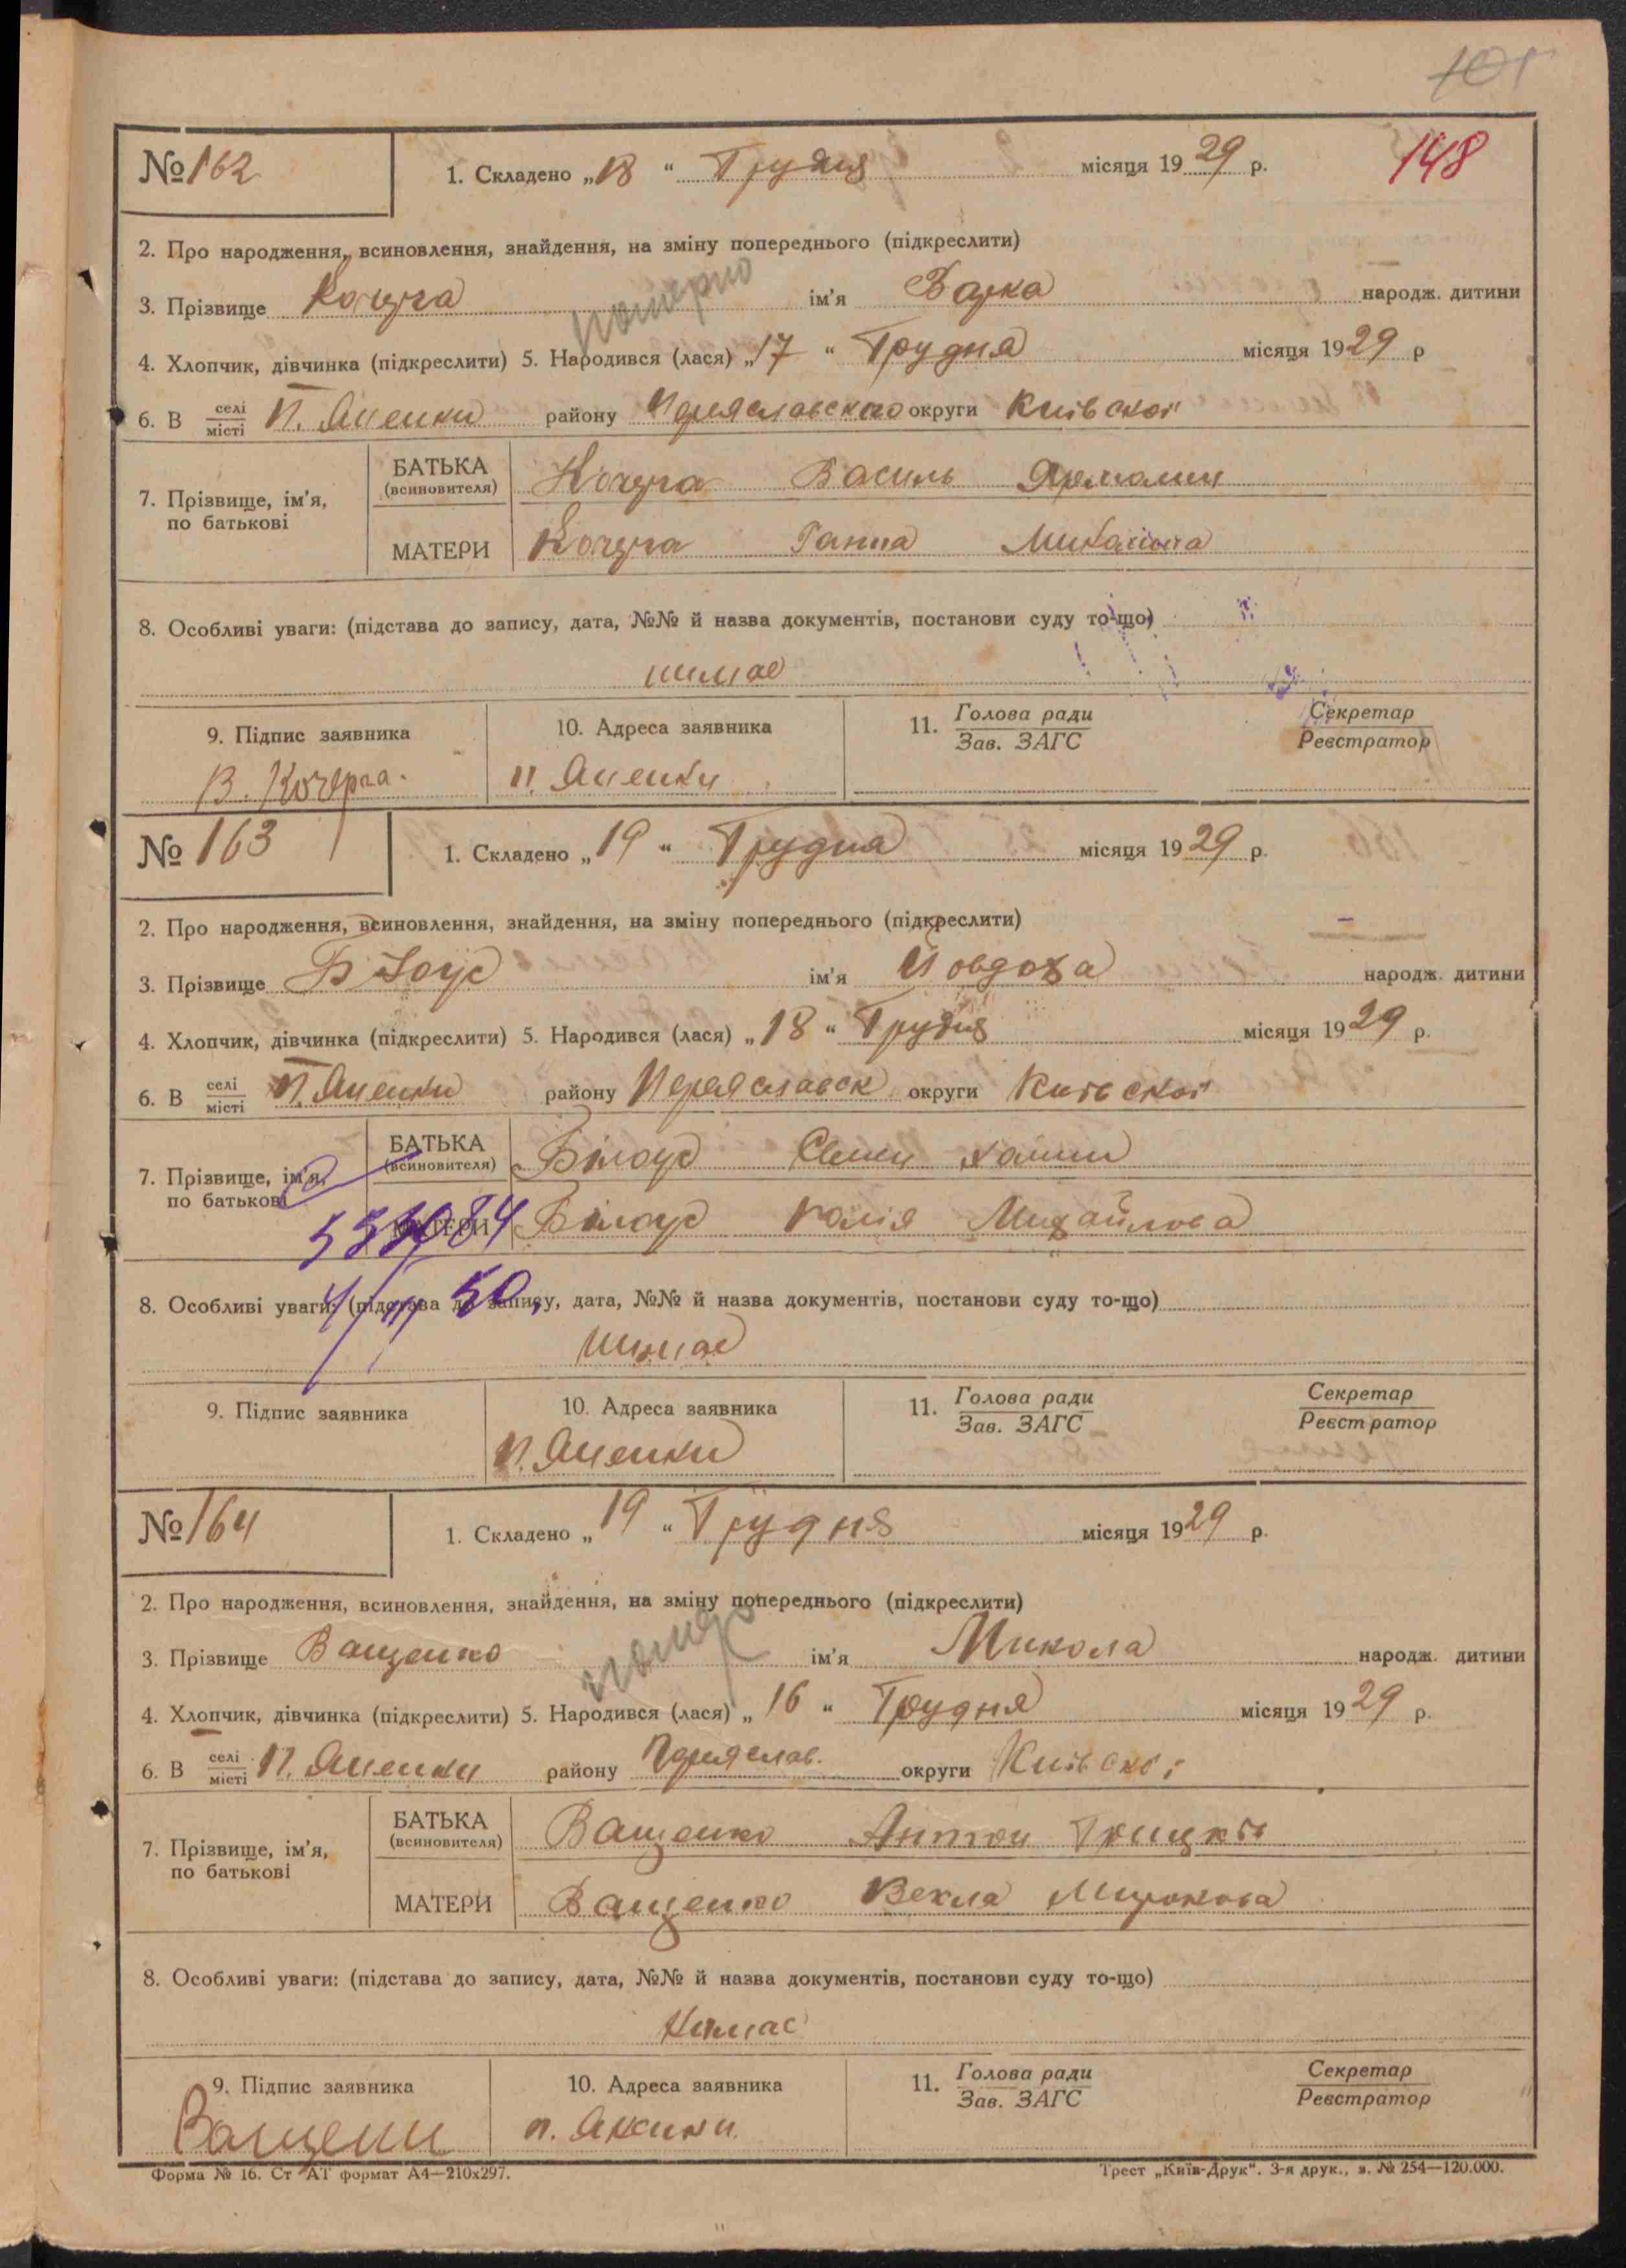 101
148
№ 162
1. Складено „18“ Грудня місяця 1929 р.
2. Про народження, всиновлення, знайдення, на зміну попереднього (підкреслити)
3. Прізвище ім'я Варка народж. дитини
4. Хлопчик, дівчинка (підкреслити) 5. Народився (лася) „17“ Грудня місяця 1929 р
6. В селі місті П. Яценки району Переяславского округи Київської
7. Прізвище, ім'я, по батькові
БАТЬКА (всиновителя) Василь
МАТЕРИ Ганна
8. Особливі уваги: (підстава до запису, дата, №№ й назва документів, постанови суду то-що)
нимає
9. Підпис заявника 10. Адреса заявника 11. Голова ради Зав. ЗАГС Секретар Реєстратор
В. Кочерга. п. Яценки
№ 163
1. Складено „19“ Грудня місяця 1929 р.
2. Про народження, всиновлення, знайдення, на зміну попереднього (підкреслити)
3. Прізвище Білоус ім'я Йовдоха народж. дитини
4. Хлопчик, дівчинка (підкреслити) 5. Народився (лася) „18“ Грудня місяця 1929 р.
6. В селі місті П. Яценки району Переяславск округи Київської
7. Прізвище, ім'я, по батькові
БАТЬКА (всиновителя) Білоус Семен
МАТЕРИ Білоус Михайлова
8. Особливі уваги: (підстава до запису, дата, №№ й назва документів, постанови суду то-що)
нимає
9. Підпис заявника 10. Адреса заявника 11. Голова ради Зав. ЗАГС Секретар Реєстратор
П. Яценки
№ 164
1. Складено „19“ Грудня місяця 1929 р.
2. Про народження, всиновлення, знайдення, на зміну попереднього (підкреслити)
3. Прізвище Ващенко ім'я Микола народж. дитини
4. Хлопчик, дівчинка (підкреслити) 5. Народився (лася) „16“ Грудня місяця 1929 р.
6. В селі місті П. Яценки району Переяслав. округи Київської
7. Прізвище, ім'я, по батькові
БАТЬКА (всиновителя) Ващенко Антон
МАТЕРИ Ващенко Векла Миронова
8. Особливі уваги: (підстава до запису, дата, №№ й назва документів, постанови суду то-що)
Нимає
9. Підпис заявника 10. Адреса заявника 11. Голова ради Зав. ЗАГС Секретар Реєстратор
Форма № 16. Ст АТ формат А4—210х297. Трест „Київ-Друк“. 3-я друк., з. № 254—120.000.